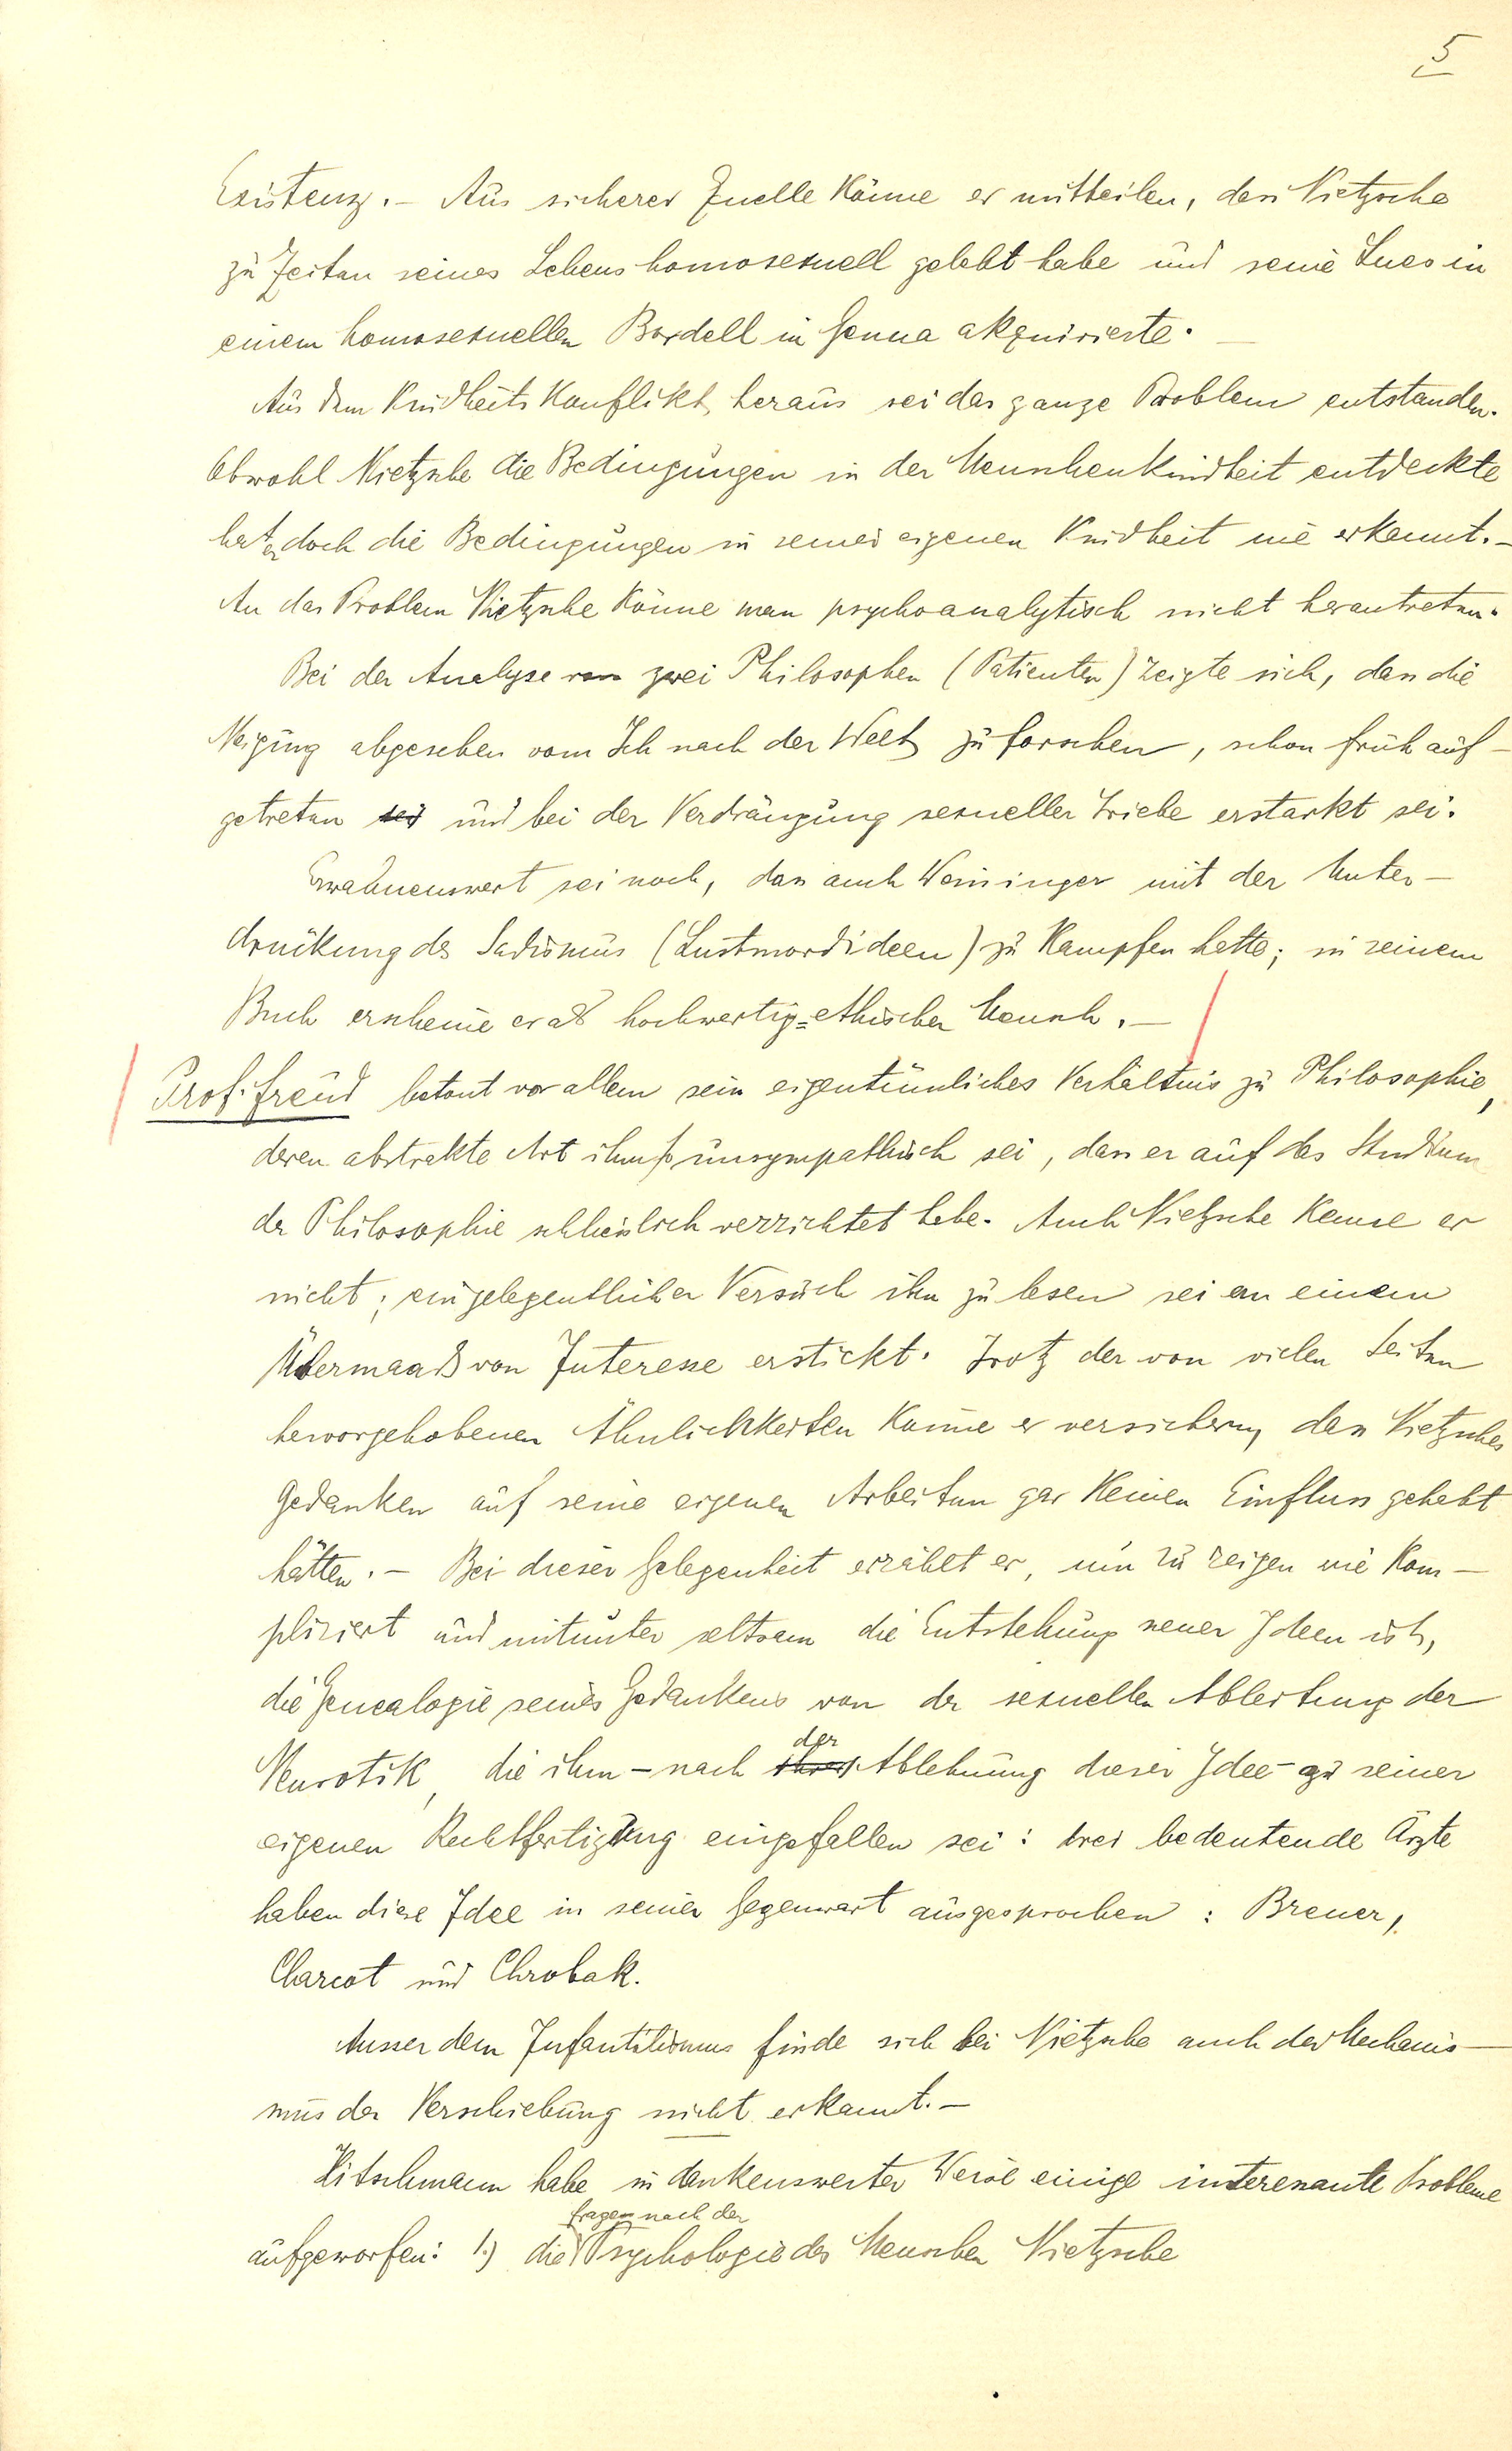 5
Existenz. – Aus sicherer Quelle könne er mitteilen, dass Nietzsche
zu Zeiten seines Lebens homosexuell gelebt habe und seine Lues in
einem homosexuellen Bordell in Genua akquirierte. –
Aus dem Kindheitskonflikt heraus sei das ganze Problem entstanden.
Obwohl Nietzsche die Bedingungen in der Menschenkindheit entdeckte
hat er doch die Bedingungen in seiner eigenen Kindheit nie erkannt. –
An das Problem Nietzsche könne man psychoanalytisch nicht herantreten.
Bei der Analyse von zwei Philosophen (Patienten) zeigte sich, dass die
Neigung abgesehen vom Ich nach der Welt zu forschen, schon früh auf-
getreten sei und bei der Verdrängung sexueller Triebe erstarkt sei.
Erwähnenswert sei noch, dass auch Weininger mit der Unter-
drückung des Sadismus (Lustmordideen) zu kämpfen hatte; in seinem
Buch erscheine er als hochwertig-ethischer Mensch. –
Prof. Freud betont vor allem sein eigentümliches Verhältnis zu Philosophie,
deren abstrakte Art ihm so unsympathisch sei, dass er auf das Studium
der Philosophie schliesslich verzichtet habe. Auch Nietzsche kenne er
nicht; ein gelegentlicher Versuch ihn zu lesen sei an einem
Übermaaß von Interesse erstickt. Trotz der von vielen Seiten
hervorgehobenen Ähnlichkeiten könne er versichern, dass Nietzsches
Gedanken auf seine eigenen Arbeiten gar keinen Einfluss gehabt
hätten. – Bei dieser Gelegenheit erzählt er, um zu zeigen wie kom-
pliziert und mitunter seltsam die Entstehung neuer Ideen ist,
die Genealogie seines Gedankens von der sexuellen Ableitung der
Neurotik, die ihm – nach der Ablehnung dieser Idee – zu seiner
eigenen Rechtfertigung eingefallen sei: drei bedeutende Ärzte
haben diese Idee in seiner Gegenwart ausgesprochen: Breuer,
Charcot und Chrobak.
Ausser dem Infantilismus finde sich bei Nietzsche auch der Mechanis-
mus der Verschiebung nicht erkannt. –
Hitschmann habe in dankenswerter Weise einige interessante Probleme
aufgeworfen: 1.) die Fragen nach der Psychologie des Menschen Nietzsche